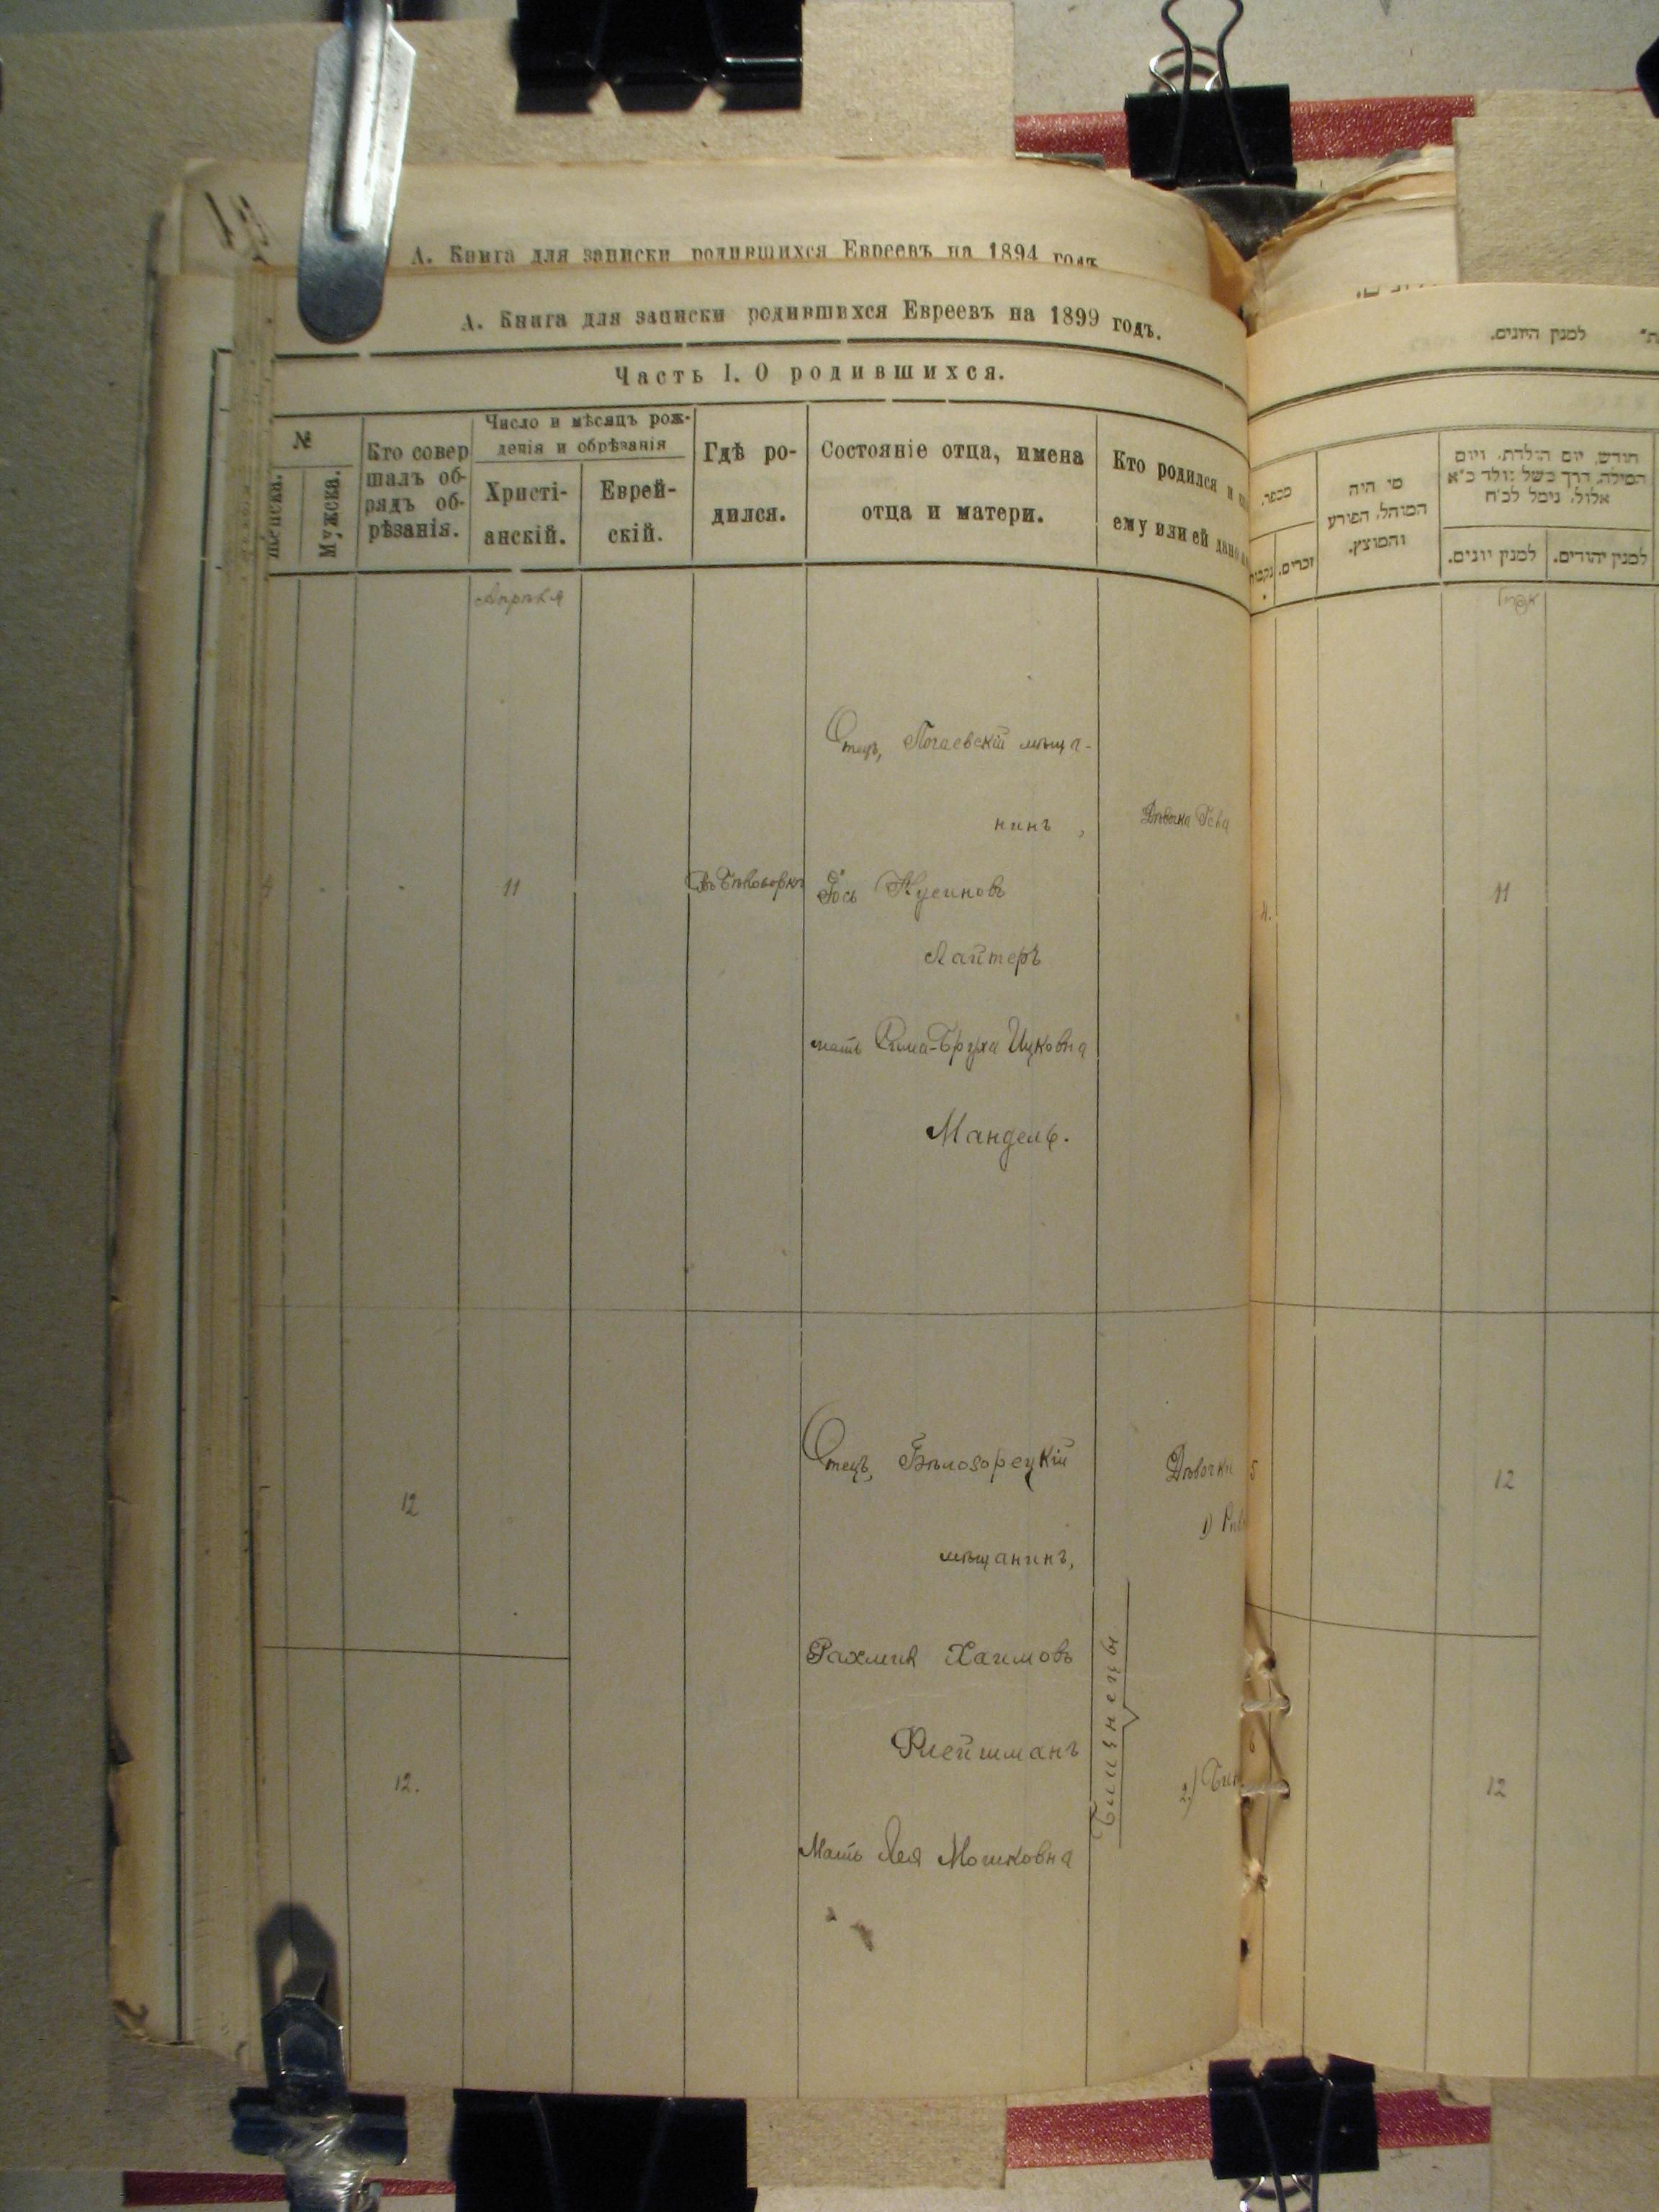 А. Книга для записки родившихся Евреевъ на 1894 годъ
А. Книга для записки родившихся Евреевъ на 1899 годъ.
Часть I. О родившихся.
№
Женска.
Мужска.
Кто совер
шалъ об-
рядъ об-
рѣзанія.
Число и мѣсяцъ рож-
денія и обрѣзанія
Христі-
анскій.
Еврей-
скій.
Гдѣ ро-
дился.
Состояніе отца, имена
отца и матери.
Кто родился и
ему или ей дано
Апрѣля
Отецъ, Почаевскій мѣща-
нинъ,
11
Въ Бѣлозоркѣ
Іось Нусиновъ
Лайтеръ
мать Сима-Бруха Ицковна
Мандель.
Дѣвочка
Отецъ, Бѣлозорецкій
мѣщанинъ,
12
Рахмиль Хаимовъ
Флейшманъ
12.
Мать Лея Мошковна
Близнецы
Дѣвочки
1)
2)
למנין היונים.
מספר.
נקבות
זכרים.
מי היה
המוהל, הפורע
והמוצץ.
חודש, יום הולדת, ויום
המילה, דרך משל נולד כ״א
אלול, נימל לכ״ח
למנין יונים.
למנין יהודים.
אפריל
4.
11
5
12
12